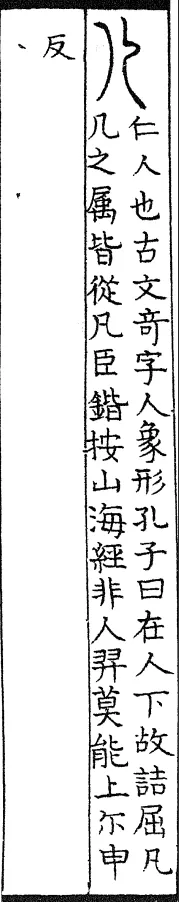 儿
仁人也古文竒字人象形孔子曰在人下故詰屈凡
几之属皆從凡臣鍇按山海經非人羿莫能上尒申
反